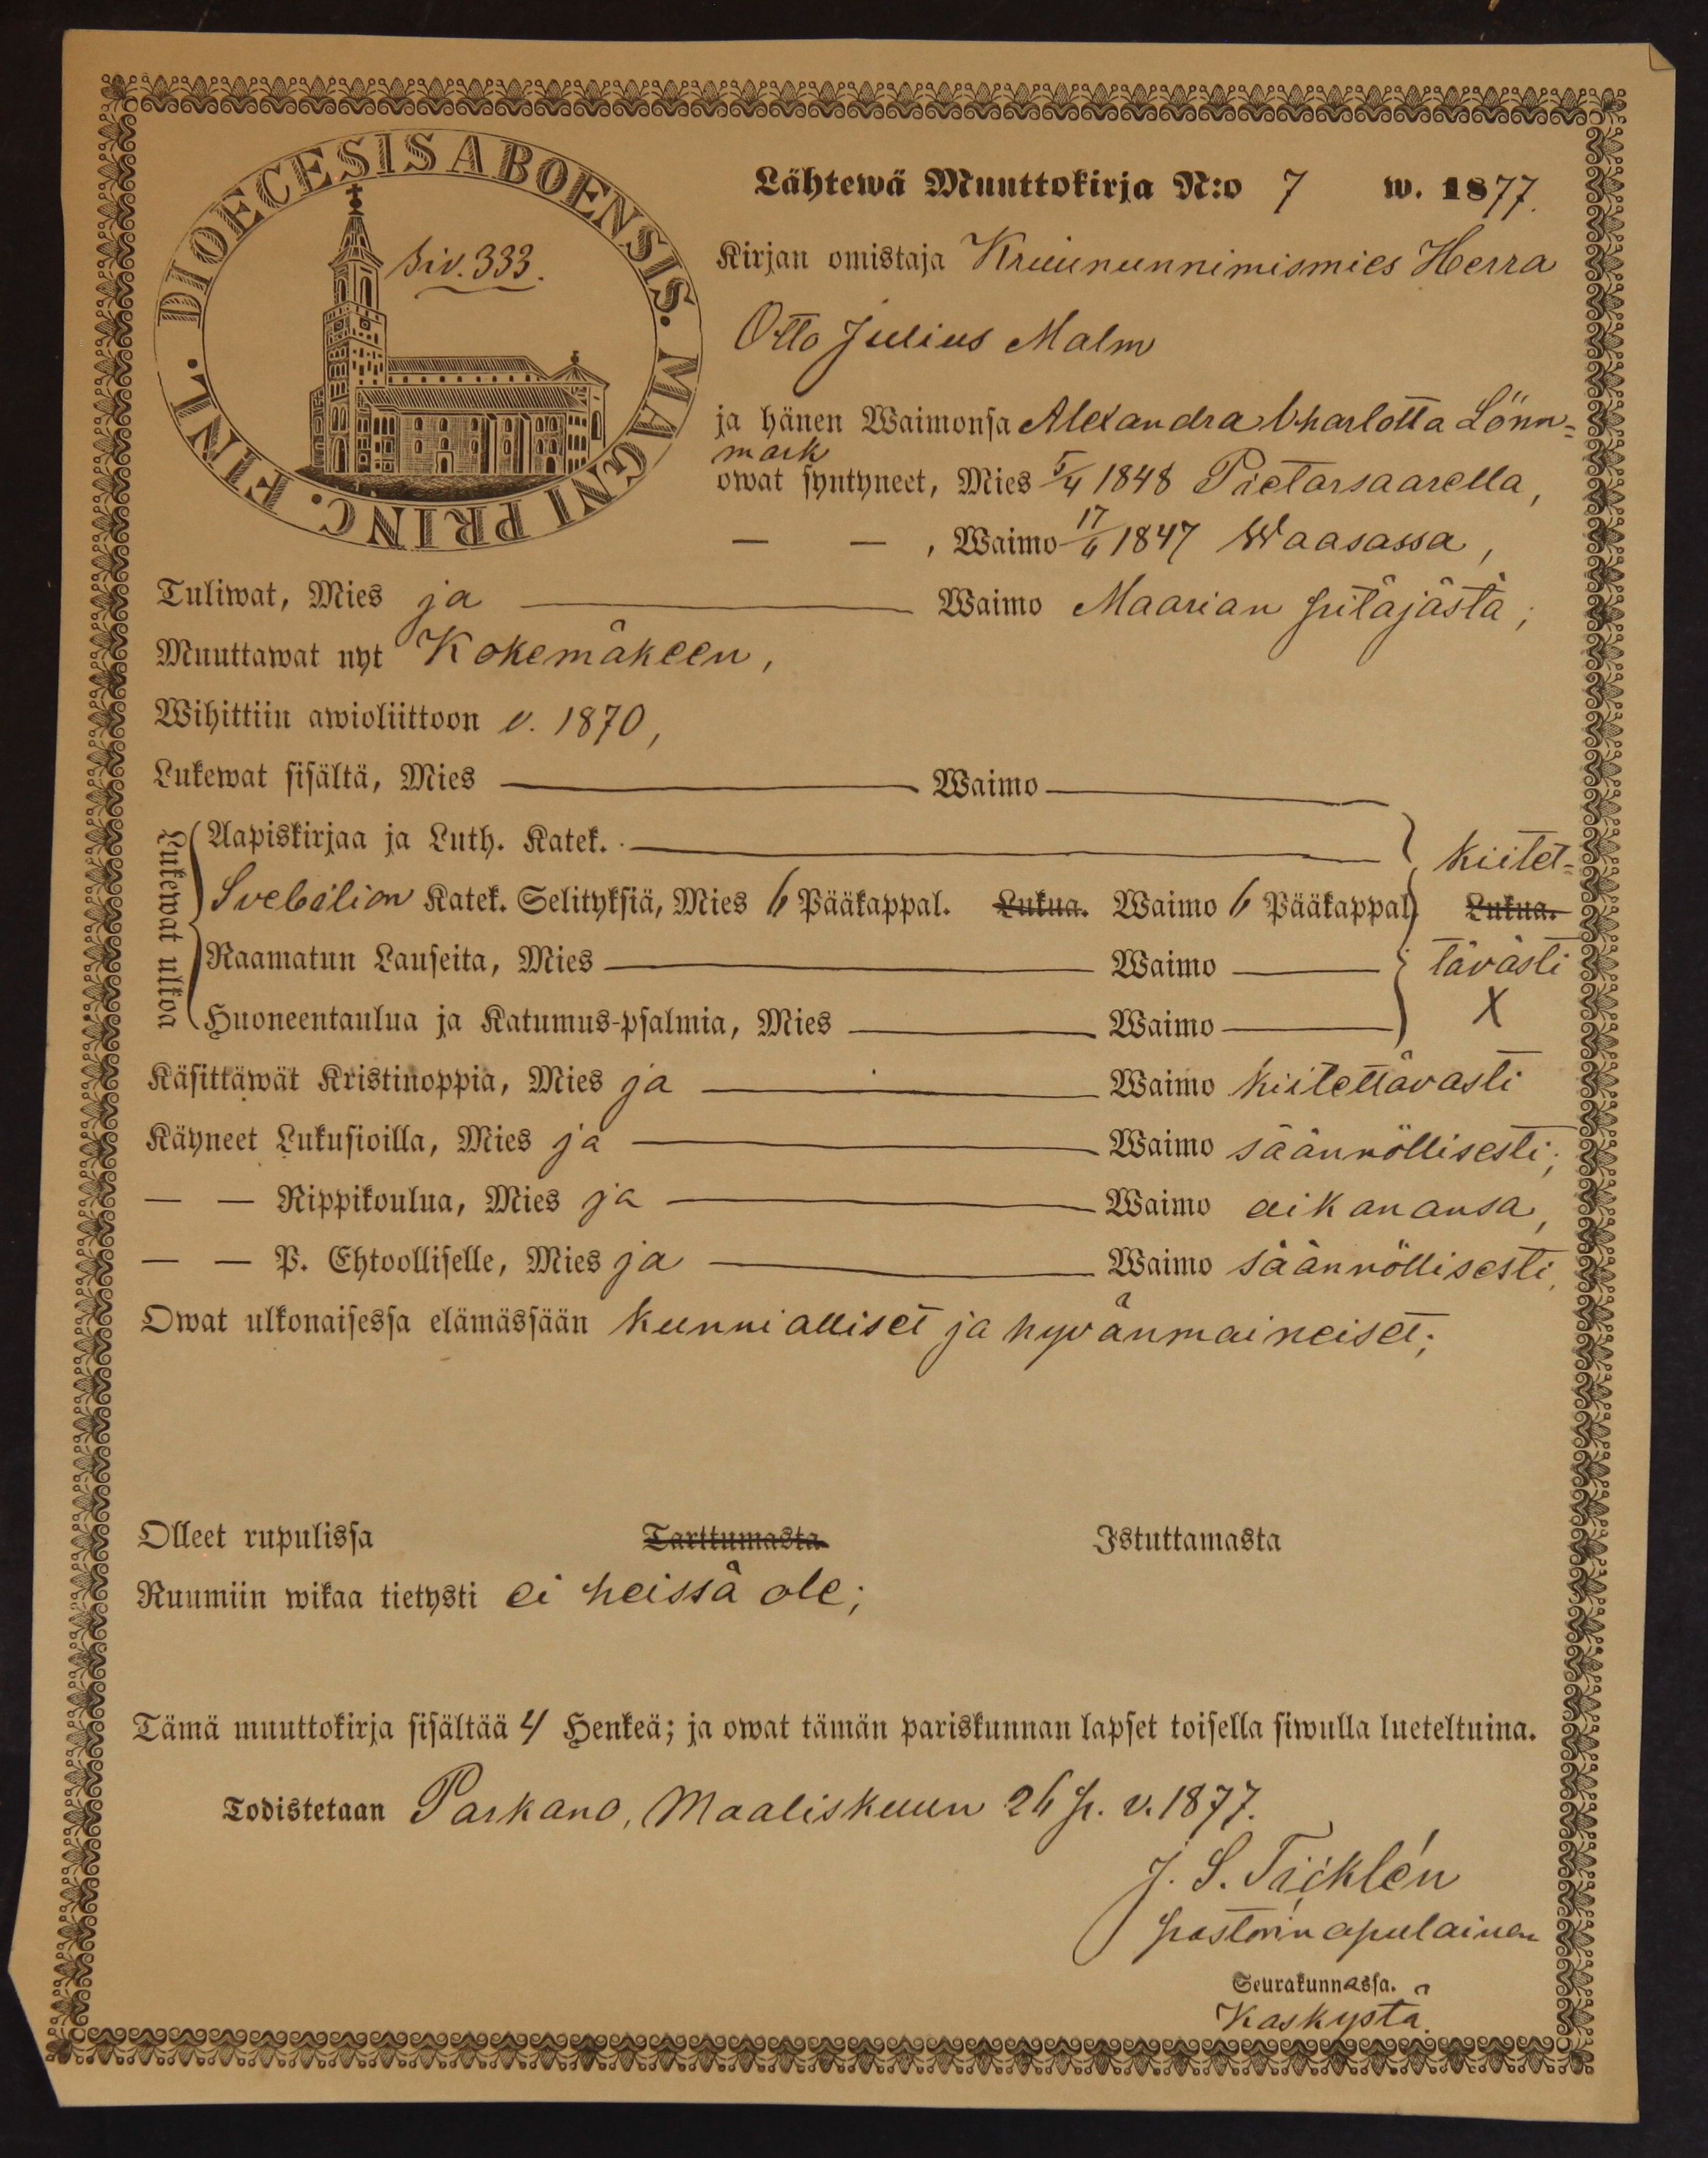 DIOECESIS ABOENSIS. MAGNI PRINC. FINL.
Siv. 333.
Lähtewä Muuttokirja N:o 7 w. 1877.
Kirjan omistaja Kruununnimismies Herra
Otto Julius Malm
ja hänen Waimonsa Alexandra Charlotta Lönn=
mark
owat syntyneet, Mies 5/4 1848 Pietarsaarella,
— — , Waimo 17/6 1847 Waasassa,
Tuliwat, Mies ja ——— Waimo Maarian pitäjästä;
Muuttawat nyt Kokemäkeen,
Wihittiin awioliittoon v. 1870,
Lukewat sisältä, Mies ——— Waimo ———
Lukewat ulkoa
Aapiskirjaa ja Luth. Katek. ——— kiitet=
Svebilion Katek. Selityksiä, Mies 6 Pääkappal. Lukua. Waimo 6 Pääkappal. Lukua.
Raamatun Lauseita, Mies ——— Waimo ——— tävästi
Huoneentaulua ja Katumus-psalmia, Mies ——— Waimo ——— X
Käsittäwät Kristinoppia, Mies ja ——— Waimo kiitettävästi
Käyneet Lukusioilla, Mies ja ——— Waimo säännöllisesti;
— — Rippikoulua, Mies ja ——— Waimo aikanansa,
— — P. Ehtoolliselle, Mies ja ——— Waimo säännöllisesti,
Owat ulkonaisessa elämässään kunnialliset ja hyvänmaineiset;
Olleet rupulissa Tarttumasta Istuttamasta
Ruumiin wikaa tietysti ei heissä ole;
Tämä muuttokirja sisältää 4 Henkeä; ja owat tämän pariskunnan lapset toisella siwulla lueteltuina.
Todistetaan Parkano, Maaliskuun 26 p. v. 1877.
J. S.
pastorin apulainen
Seurakunnassa.
Käskystä.